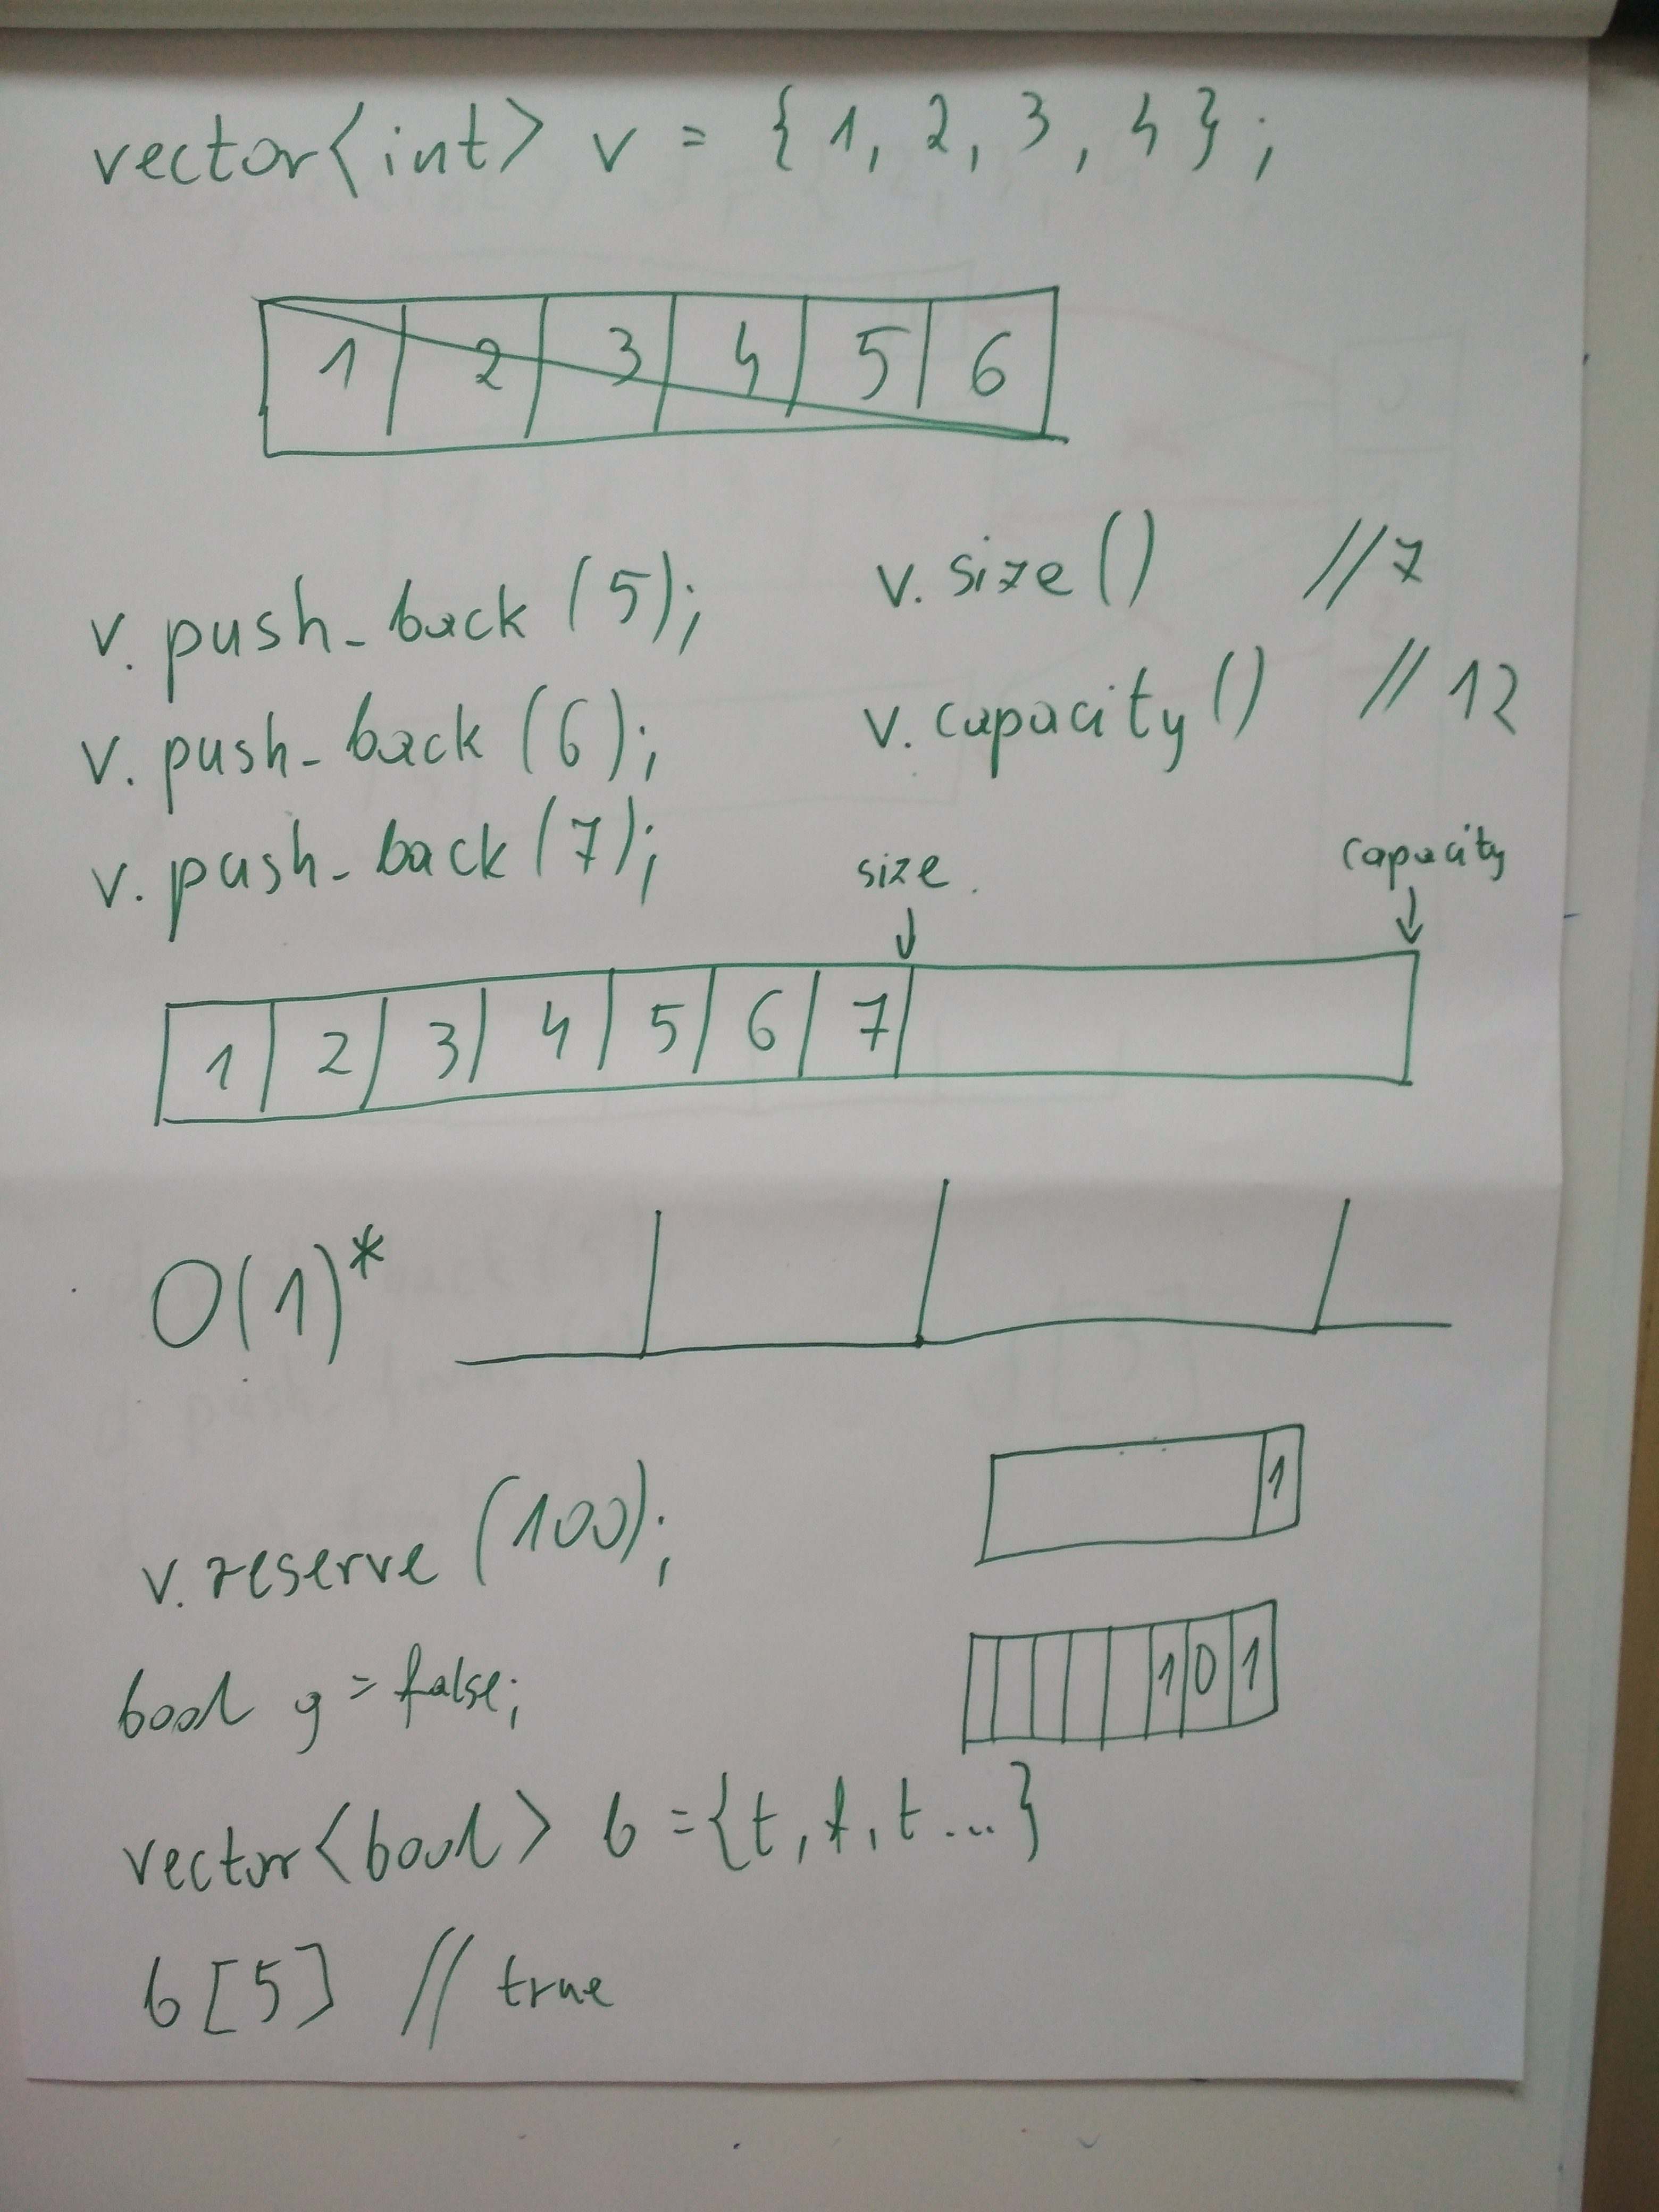 vector<int> v = { 1, 2, 3, 4 } ;
1 2 3 4 5 6
v. push_back (5);
v. push_back (6);
v. push_back (7);
v. size () //7
v. capacity () // 12
size
capacity
1 2 3 4 5 6 7
O(1)*
v. reserve (100);
1
bool g = false;
1 0 1
vector<bool> b = {t, f, t ... }
b [5] // true